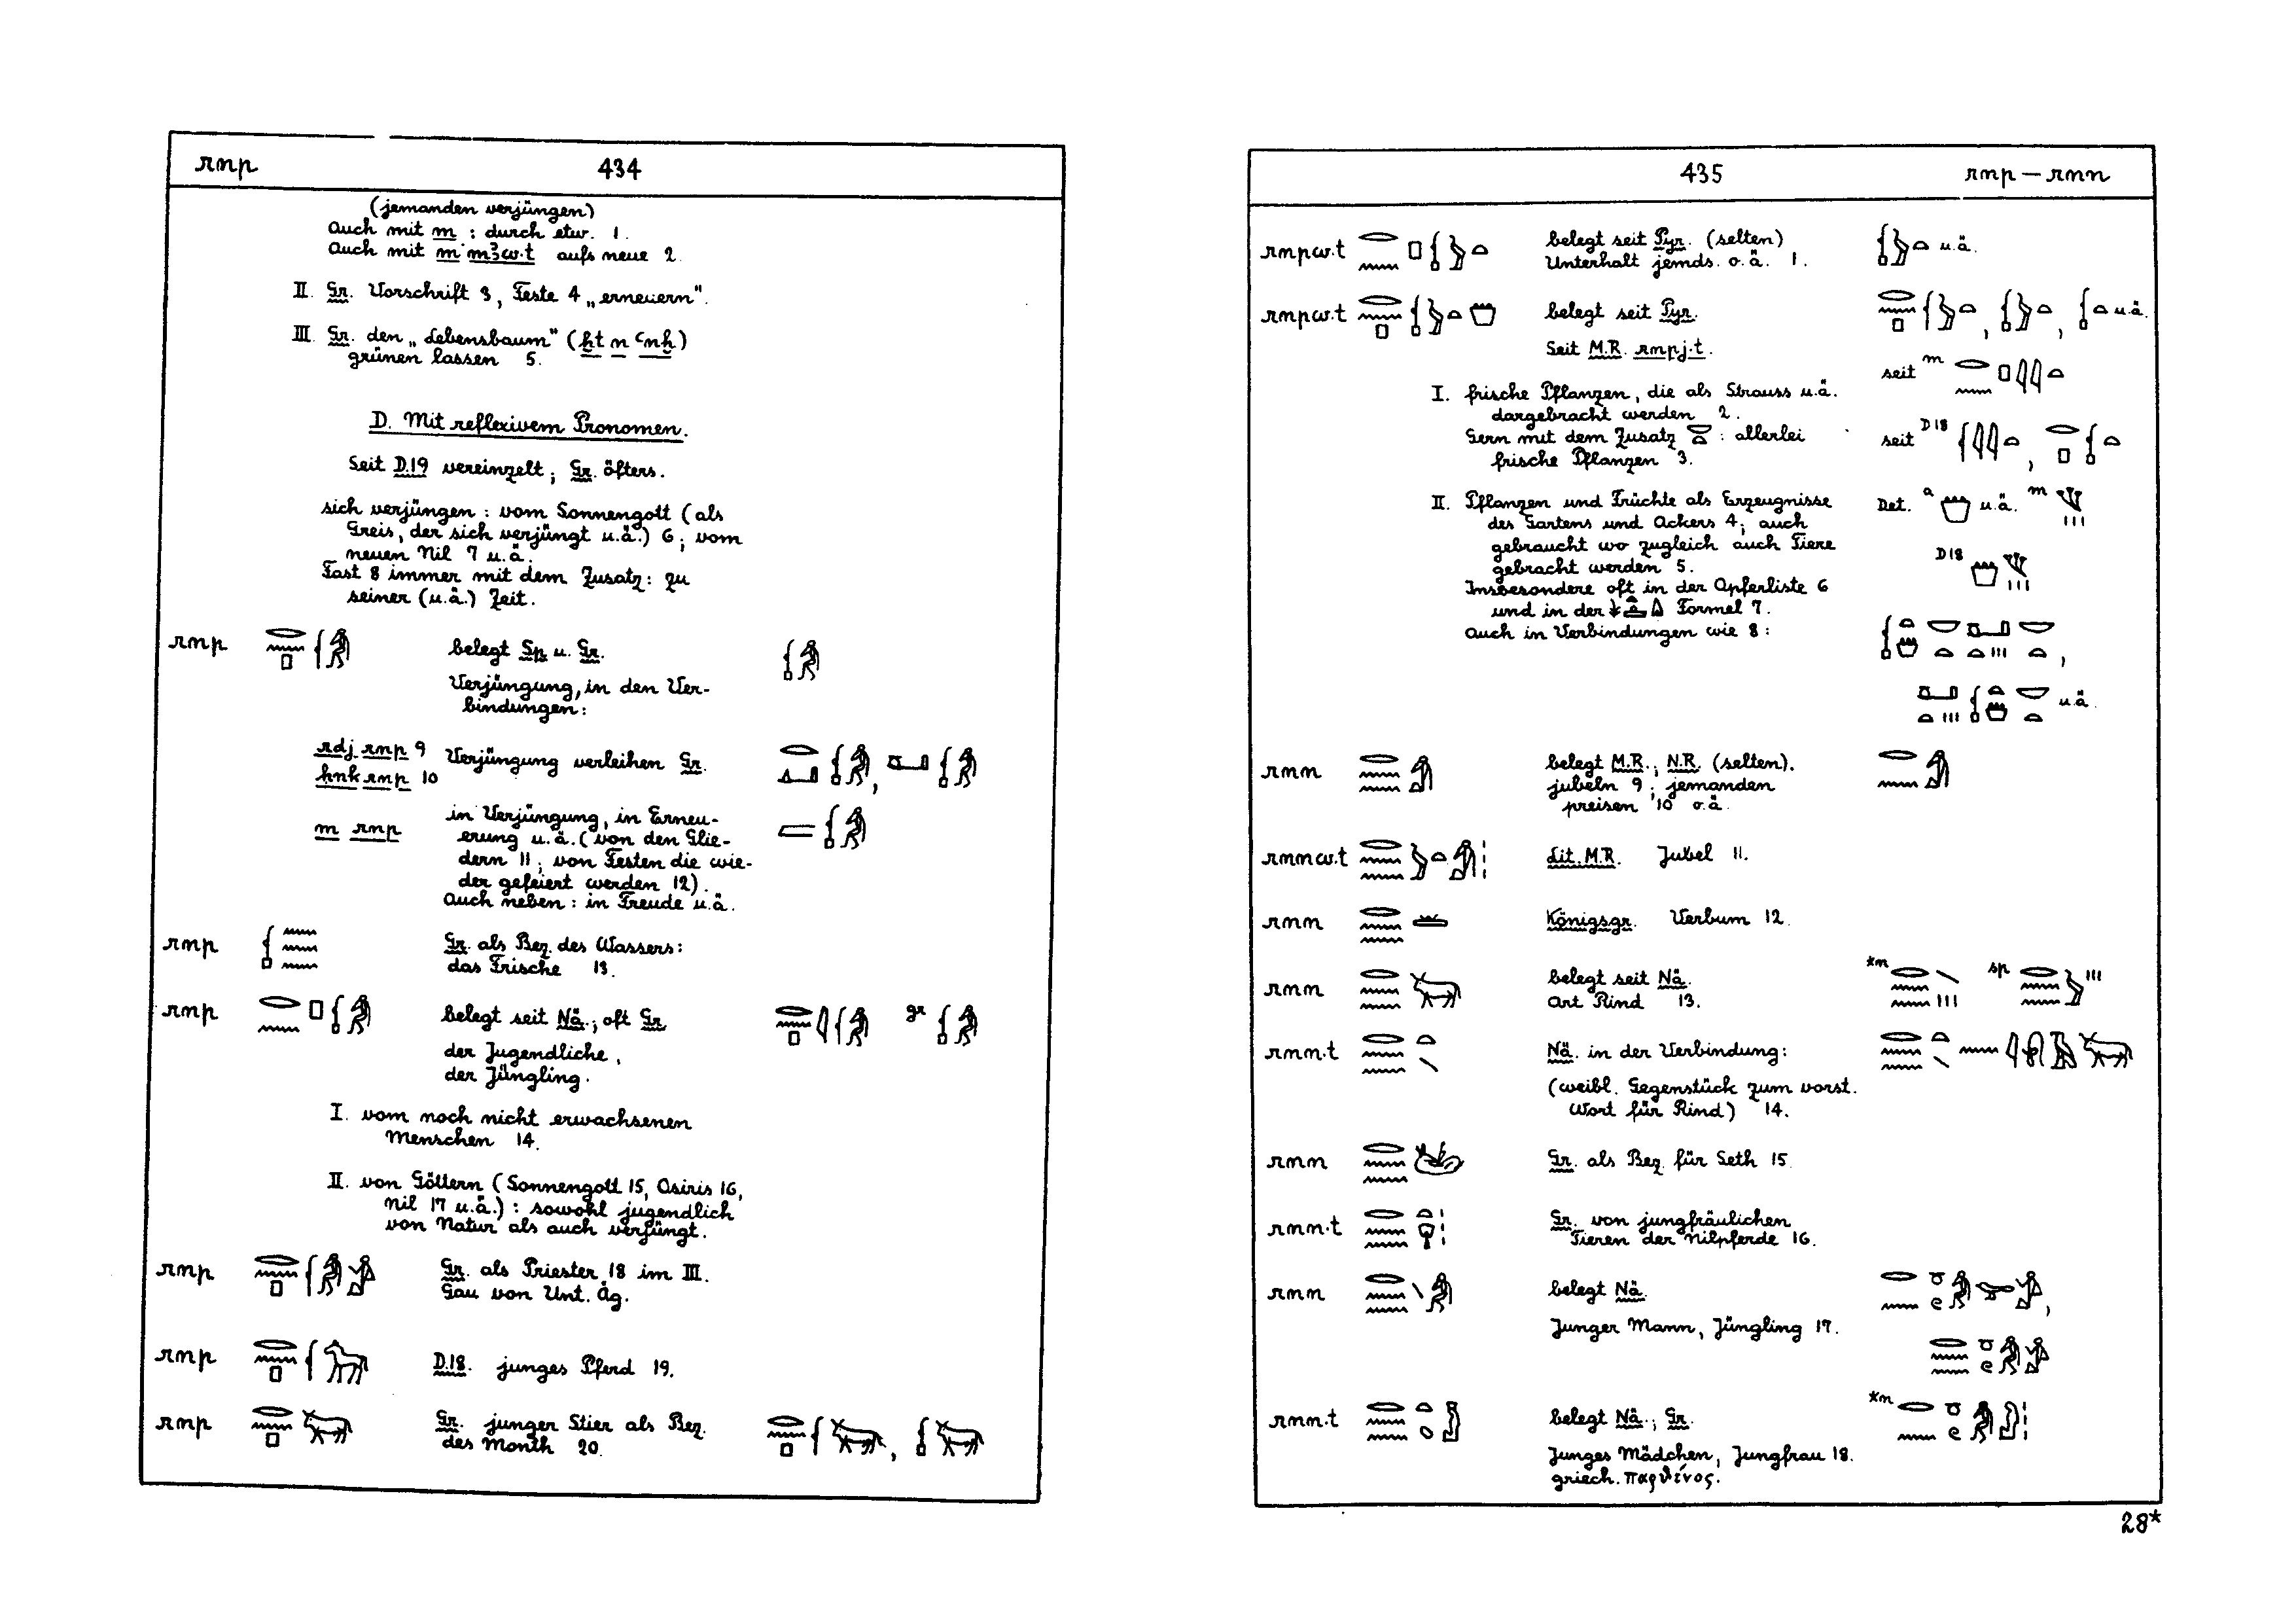 rnp 434
(jemanden verjüngen)
Auch mit m : durch etw. 1.
Auch mit m m3w.t aufs neue 2.
II. Gr. Vorschrift 3, Feste 4 „erneuern".
III. Gr. den „Lebensbaum" (ḫt n ꜥnḫ)
grünen lassen 5.
D. Mit reflexivem Pronomen.
Seit D.19 vereinzelt; Gr. öfters.
sich verjüngen: vom Sonnengott (als
Greis, der sich verjüngt u.ä.) 6; vom
neuen Nil 7 u.ä.
Fast 8 immer mit dem Zusatz: zu
seiner (u.ä.) Zeit.
rnp belegt Sp u. Gr.
Verjüngung, in den Ver-
bindungen:
rdj rnp 9 Verjüngung verleihen Gr.
ḥnk rnp 10
m rnp in Verjüngung, in Erneu-
erung u.ä. (von den Glie-
dern 11; von Festen die wie-
der gefeiert werden 12).
Auch neben: in Freude u.ä.
rnp Gr. als Bez. des Wassers:
das Frische 13.
rnp belegt seit Nä.; oft Gr. gr
der Jugendliche,
der Jüngling.
I. vom noch nicht erwachsenen
Menschen 14.
II. von Göttern (Sonnengott 15, Osiris 16,
Nil 17 u.ä.): sowohl jugendlich
von Natur als auch verjüngt.
rnp Gr. als Priester 18 im III.
Gau von Unt. Äg.
rnp D.18. junges Pferd 19.
rnp Gr. junger Stier als Bez.
des Month 20.
435 rnp – rnn
rnpw.t belegt seit Pyr. (selten) u.ä.
Unterhalt jemds. o.ä. 1.
rnpw.t belegt seit Pyr. u.ä.
Seit M.R. rnpj.t. seit m
I. frische Pflanzen, die als Strauss u.ä.
dargebracht werden 2.
Gern mit dem Zusatz : allerlei seit D18
frische Pflanzen 3.
II. Pflanzen und Früchte als Erzeugnisse Det. a u.ä. m
des Gartens und Ackers 4; auch
gebraucht wo zugleich auch Tiere D18
gebracht werden 5.
Insbesondere oft in der Opferliste 6
und in der Formel 7.
Auch in Verbindungen wie 8:
u.ä.
rnn belegt M.R.; N.R. (selten).
jubeln 9; jemanden
preisen 10 o.ä.
rnnw.t Lit. M.R. Jubel 11.
rnn Königsgr. Verbum 12.
rnn belegt seit Nä. *m sp
Art Rind 13.
rnn.t Nä. in der Verbindung:
(weibl. Gegenstück zum vorst.
Wort für Rind) 14.
rnn Gr. als Bez. für Seth 15.
rnn.t Gr. von jungfräulichen
Tieren der Nilpferde 16.
rnn belegt Nä.
Junger Mann, Jüngling 17.
rnn.t belegt Nä.; Gr. *m
Junges Mädchen, Jungfrau 18.
griech. παρθένος.
28*